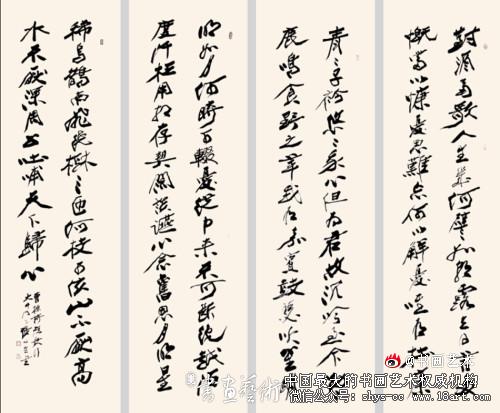 對酒當歌人生幾何譬如朝露去日苦
慨當以慷憂思難忘何以解憂唯有杜
青々子衿悠々我心但為君故沉吟至今呦
鹿鳴食野之苹我有嘉賓鼓瑟吹笙
明明如月何時可輟憂從中來不可斷絕越陌
度阡枉用相存契闊談讌心念舊恩月明星
稀烏鵲南飛繞樹三匝何枝可依山不厭高
水不厭深周公吐哺天下歸心
曹操詩短歌行
@书画艺术
中国最大的书画艺术权威机构
公众号：shya-cc www.18art.com